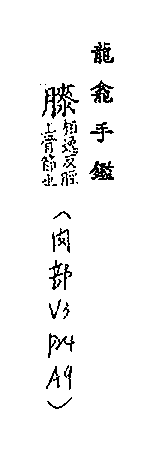 龍龕手鑑
膝
逸反脛
上骨節也
(肉部
V3
P24
A9)